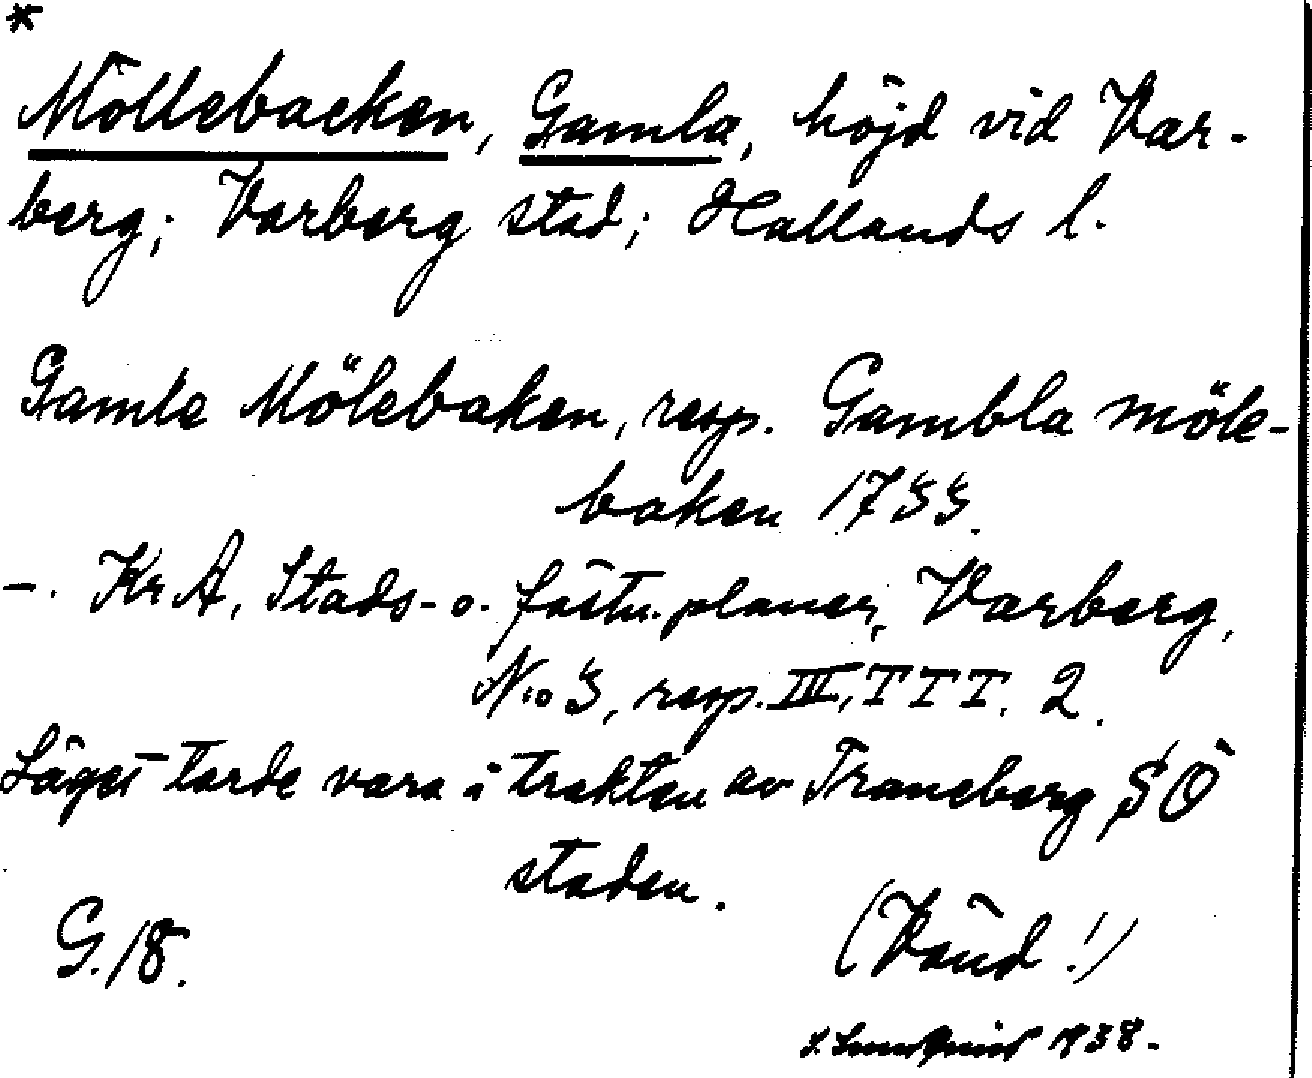 *
Möllebacken, Gamla, höjd vid Var-
berg; Varberg stad; Hallands l.
Gamle Mölebaken, resp. Gambla möle-
baken 1733.
-. Kr A, Stads- o. fästn. planer, Varberg,
N:o 3, resp. III, TTT. 2.
Läget torde vara i trakten av Traneberg SÖ
staden.
G. 18.
(Vänd!)
1938.